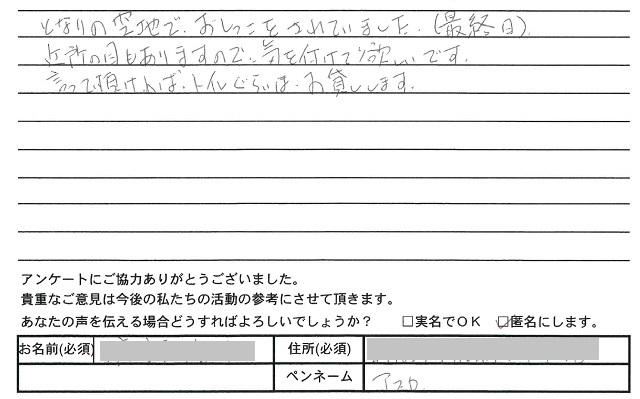 となりの空地で、おしっこをされていました。(最終日)
近所の目もありますので、気を付けて欲しいです。
言って頂ければ、トイレぐらいは、お貸しします。
アンケートにご協力ありがとうございました。
貴重なご意見は今後の私たちの活動の参考にさせて頂きます。
あなたの声を伝える場合どうすればよろしいでしょうか？ □実名でＯＫ ☑匿名にします。
お名前(必須) 住所(必須)
ペンネーム